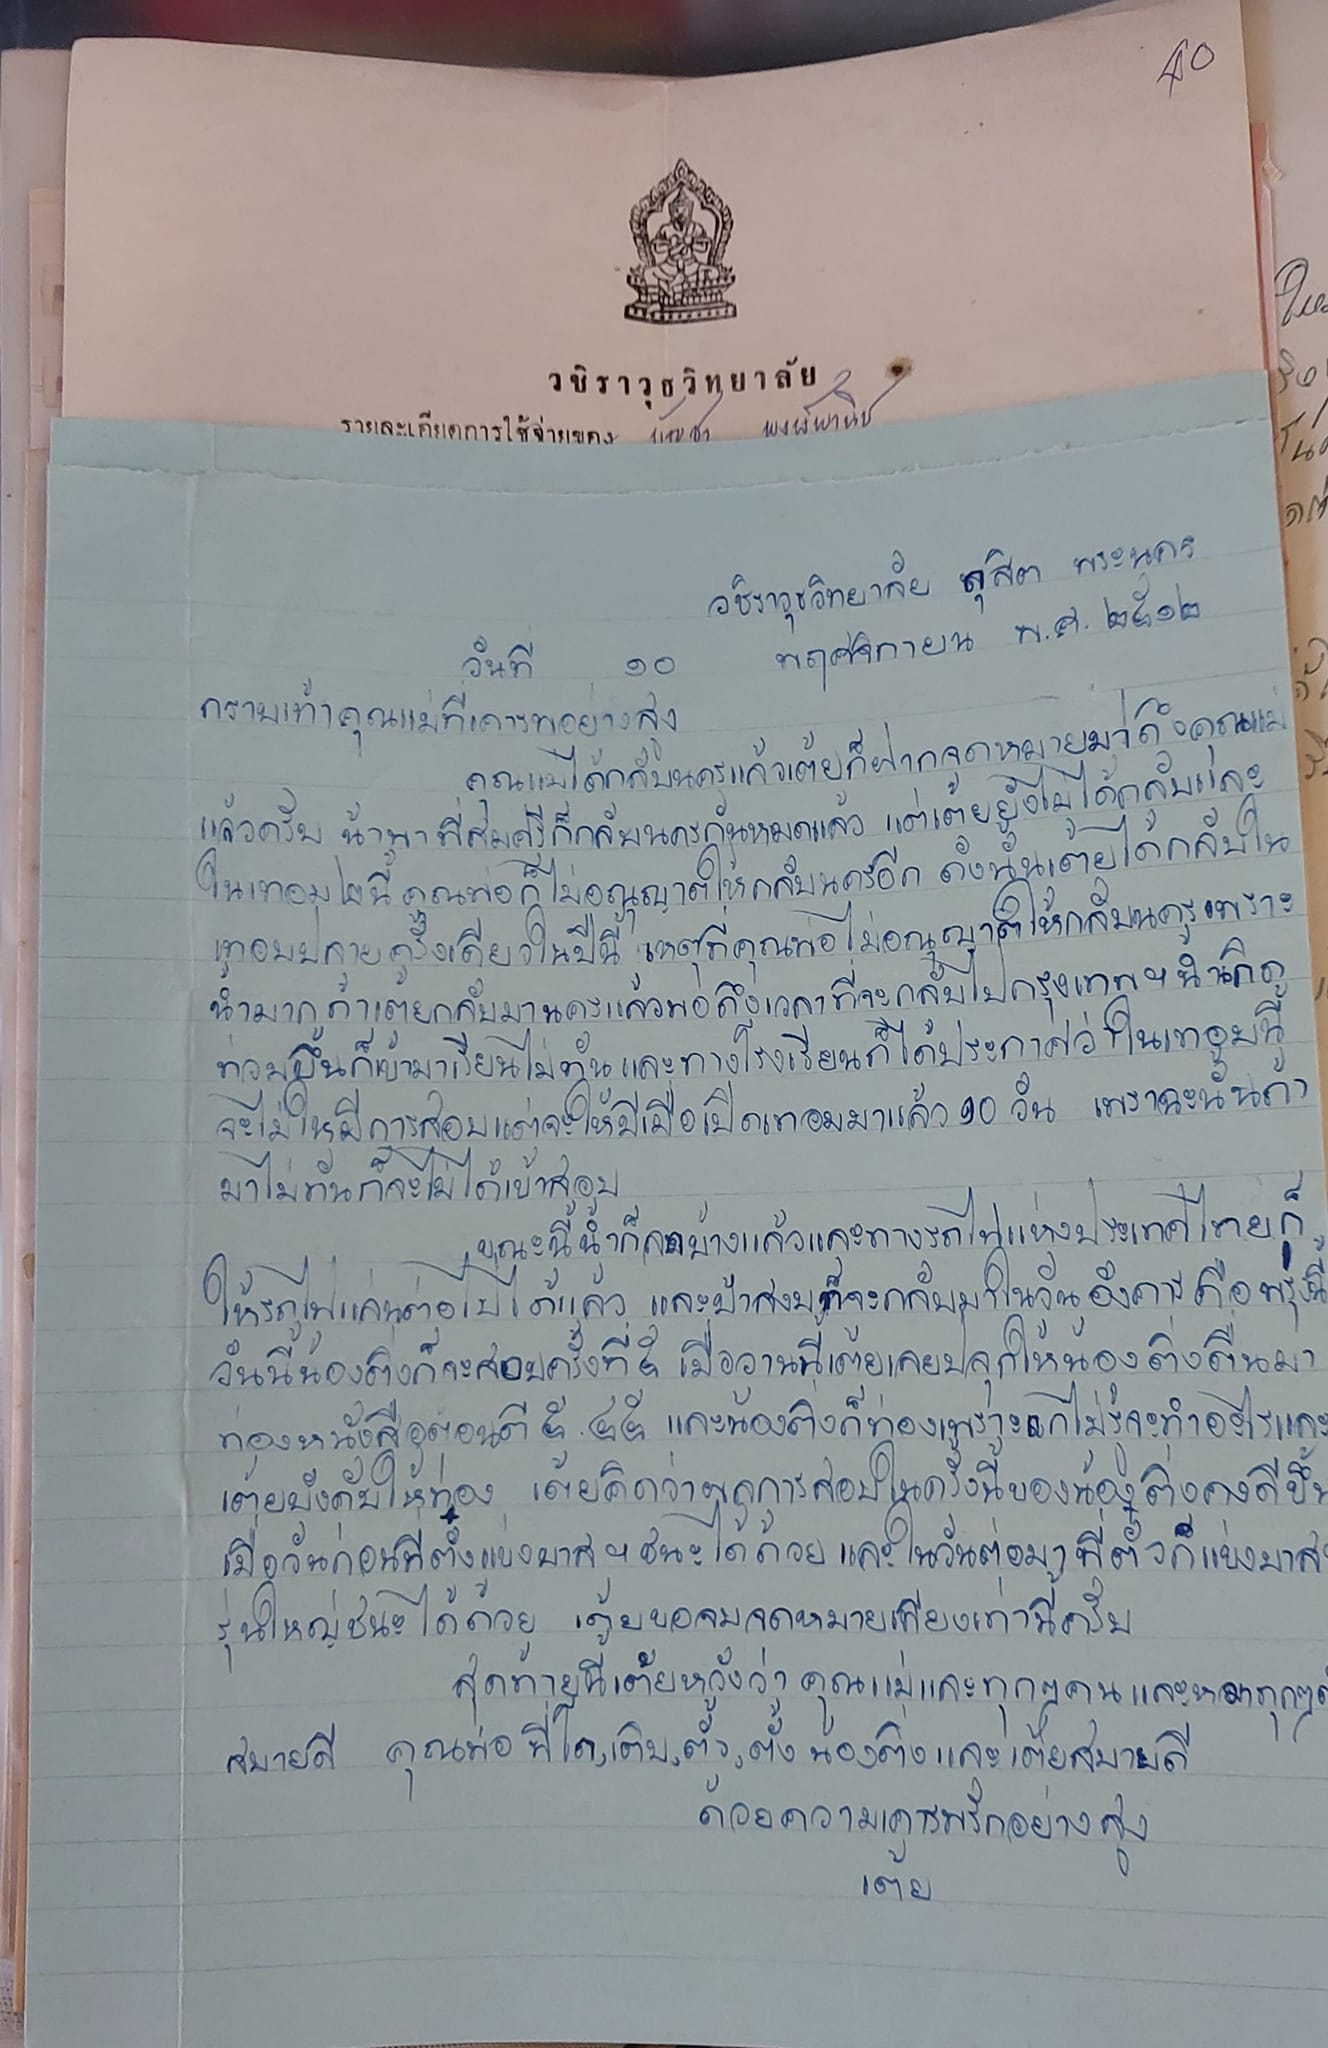 ๔๐
วชิราวุธวิทยาลัย
รายละเอียดการใช้จ่ายของ
วชิราวุธวิทยาลัย ดุสิต พระนคร
วันที่ ๑๐ พฤศจิกายน พ.ศ. ๒๕๑๒
กราบเท้าคุณแม่ที่เคารพอย่างสูง
คุณแม่ได้กลับนครแล้วเต้ยก็ฝากจดหมายมาถึงคุณแม่
แล้วครับ น้าพา พี่สมศรีก็กลับนครกันหมดแล้ว แต่เต้ยยังไม่ได้กลับและ
ในเทอม ๒ นี้ คุณพ่อก็ไม่อนุญาตให้กลับนครอีก ดังนั้นเต้ยได้กลับใน
เทอมปลายครั้งเดียวในปีนี้ เหตุที่คุณพ่อไม่อนุญาตให้กลับนครเพราะ
น้ำมาก ถ้าเต้ยกลับมานครแล้วพอถึงเวลาที่จะกลับไปกรุงเทพฯ น้ำเกิด
ท่วมขึ้นก็เข้ามาเรียนไม่ทัน และทางโรงเรียนก็ได้ประกาศว่าในเทอมนี้
จะไม่ให้มีการสอบแต่จะให้มีเมื่อเปิดเทอมมาแล้ว ๑๐ วัน เพราะฉะนั้นถ้า
มาไม่ทันก็จะไม่ได้เข้าสอบ
ขณะนี้น้ำก็ลดบ้างแล้วและทางรถไฟแห่งประเทศไทยก็
ให้รถไฟแล่นต่อไปได้แล้ว และป้าสงบก็จะกลับมาในวันอังคารคือพรุ่งนี้
วันนี้น้องติ่งก็จะสอบครั้งที่ ๕ เมื่อวานนี้เต้ยเลยปลุกให้น้องติ่งตื่นมา
ท่องหนังสือตอนตี ๕.๔๕ และน้องติ่งก็ท่องเพราะแกไม่รู้จะทำอะไรและ
เต้ยบังคับให้ท่อง เต้ยคิดว่าผลการสอบในครั้งนี้ของน้องติ่งคงดีขึ้น
เมื่อวันก่อนพี่ตั้งแข่งบาสฯ ชนะได้ถ้วย และในวันต่อมาพี่ตั้วก็แข่งบาสฯ
รุ่นใหญ่ชนะได้ถ้วย เต้ยขอจบจดหมายเพียงเท่านี้ครับ
สุดท้ายนี้เต้ยหวังว่า คุณแม่และทุกๆคน และหมาทุกๆ
สบายดี คุณพ่อ พี่โต,เติบ,ตั้ว,ตั้ง น้องติ่งและเต้ยสบายดี
ด้วยความเคารพรักอย่างสูง
เต้ย